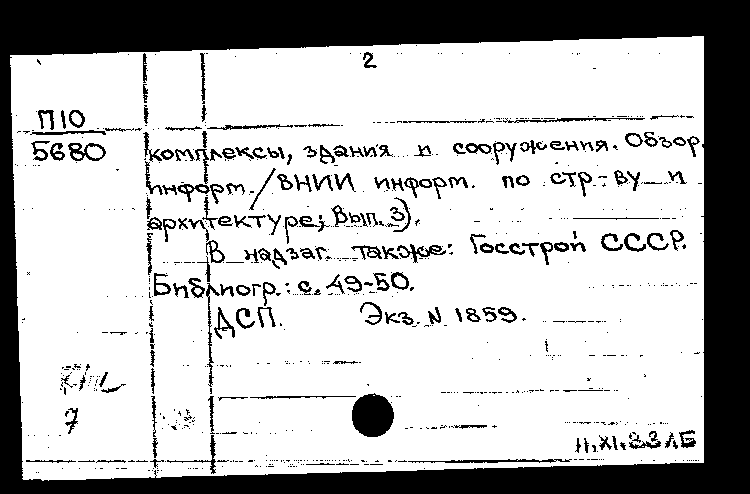 2
П10
5680
комплексы, здания и сооружения. Обзор.
информ. / ВНИИ информ. по стр-ву и
архитектуре; Вып. 3).
В надзаг. также: Госстрой СССР.
Библиогр.: с. 49-50.
ДСП. Экз. N 1859.
7
11.XI.83 ЛБ